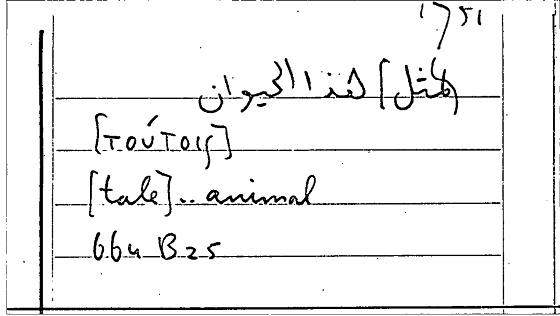 1751
[لمثل] هذا الحيوان
[τούτοις]
[tale].. animal
664 B25